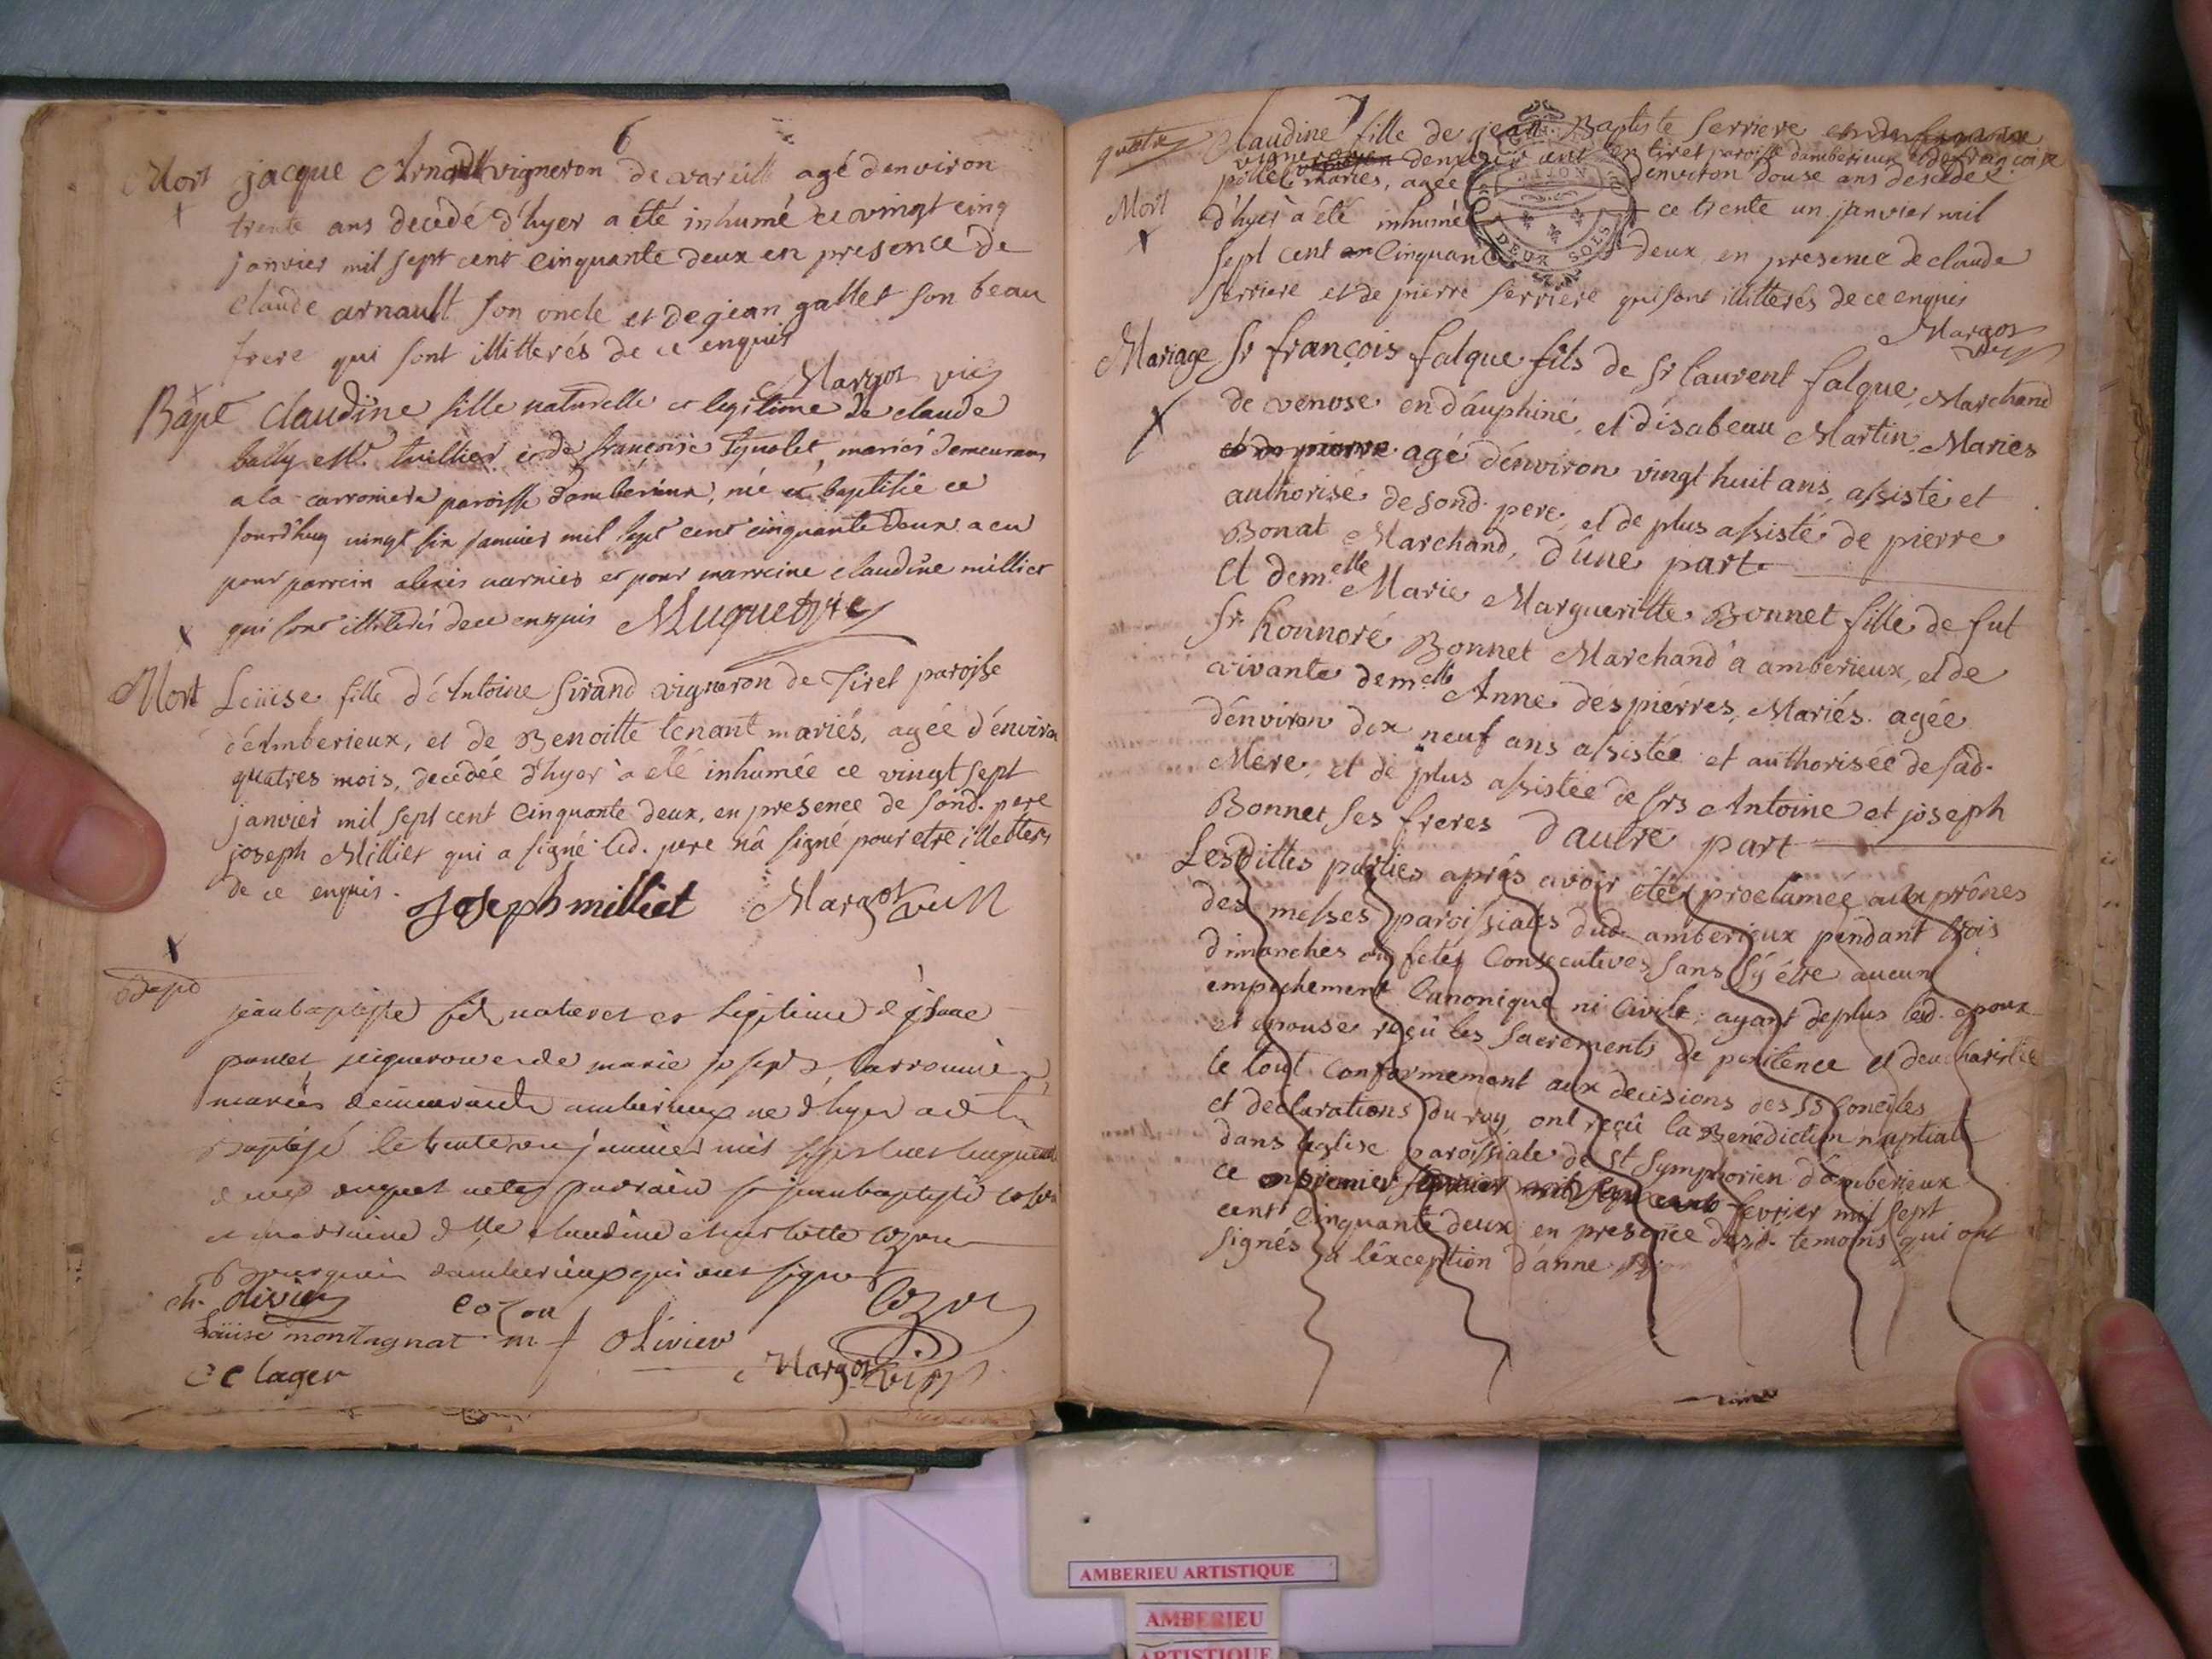 6
Mort jacque Arnault vigneron de vareille agé denviron
trente ans decédé d'hyer a été inhumé ce vingt cinq
janvier mil sept cent Cinquante deux en presence de
claude arnault son oncle et de jean gallet son beau
frere qui sont illitterés de ce enquis
Margot vic
Bapt Claudine fille naturelle et legitime de claude
bally Mr. tuillier et de françoise mariés demeurans
a la carroniere paroisse d'amberieux, née et baptisée ce
jourd'huy vingt six janvier mil sept cent cinquante deux a eu
pour parrein alexis varnier et pour marreine claudine milliet
qui sont illiterés de ce enquis Muguet vic
Mort Loüise fille d'Antoine Sirand vigneron de Tiret paroisse
d'Amberieux, et de Benoitte tenant mariés, agée d'environ
quatres mois, decedée d'hyer a été inhumée ce vingt sept
janvier mil sept cent Cinquante deux, en presence de sond. pere
joseph Milliet qui a signé led. pere n'a signé pour etre illetteré
de ce enquis. Joseph milliet Margot vic
Bapt
jean baptiste fils naturel et legitime de
pontet vigneron et de marie joseph
mariés demeurants amberieux né d'hyer a été
Baptisé le trente un janvier mil sept cent cinquante
deux parrain sr jean baptiste cozon
et marraine dlle claudine charlotte cozon
Bourgeois d'amberieux qui ont signés
ch. olivier cozon Cozon
Loüise montagnat m f olivier
lager Margot vic
7
quatre Claudine fille de jean Baptiste Serriere
vigneron en tiret paroisse damberieux et de françoise
pollet mariés, agée denviron douse ans decedée
Mort d'hyer a été inhumé ce trente un janvier mil
DIJON
DEUX SOLS
sept cent Cinquante deux en presence de claude
Serriere et de pierre Serriere qui sont illitterés de ce enquis
Margot vic
Mariage Sr françois falque fils de Sr laurent falque, Marchand
de venose en dauphiné, et d'isabeau Martin, Mariés
et de pierre agé d'environ vingt huit ans, assisté et
authorisé de sond. pere, et de plus assisté de pierre
Bonat Marchand, d'une part
Et demelle Marie Margueritte Bonnet fille de fut
Sr. honnoré Bonnet Marchand a amberieux, et de
vivante demelle Anne despiérres, Mariés. agée
d'environ dix neuf ans assistée et authorisée de sad.
Mere, et de plus assistée de Srs Antoine et joseph
Bonnet ses freres d'autre part
Lesdittes parties aprés avoir étées proclamée aux prônes
des messes paroissiales dud. amberieux pendant trois
dimanches ou fetes Consecutives sans s'y être aucun
empechement Canonique ni Civile; ayant deplus led. epoux
et epouse reçû les sacrements de penitence et d'eucharistie
le tout Conformement aux decisions des SS Conciles
et declarations du roy, ont reçû la Benediction nuptiale
dans l'eglise paroissiale de St Symphorien d'amberieux
ce premier fevrier mil sept
cent Cinquante deux en presence desd. temoins qui ont
signés a l'exception d'anne
AMBERIEU ARTISTIQUE
AMBERIEU
ARTISTIQUE